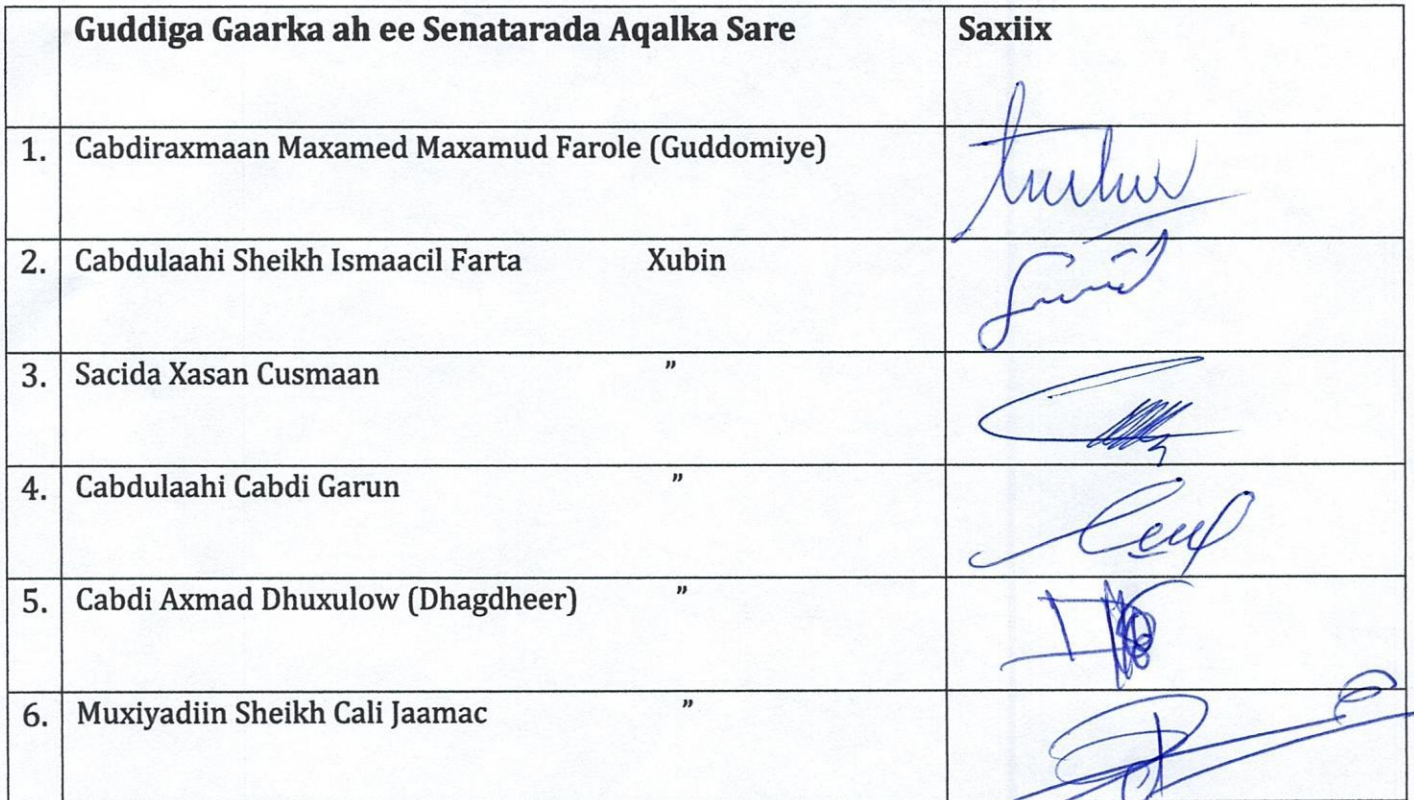 Guddiga Gaarka ah ee Senatarada Aqalka Sare Saxiix
1. Cabdiraxmaan Maxamed Maxamud Farole (Guddomiye)
2. Cabdulaahi Sheikh Ismaacil Farta Xubin
3. Sacida Xasan Cusmaan ”
4. Cabdulaahi Cabdi Garun ”
5. Cabdi Axmad Dhuxulow (Dhagdheer) ”
6. Muxiyadiin Sheikh Cali Jaamac ”